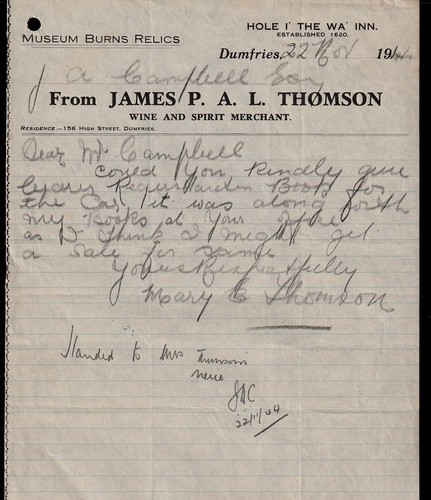 HOLE I' THE WA' INN.
ESTABLISHED 1620.
MUSEUM BURNS RELICS
Dumfries, 22 Nov 1944
J A Campbell Esq
From JAMES P. A. L. THOMSON
WINE AND SPIRIT MERCHANT.
RESIDENCE—156 HIGH STREET, DUMFRIES.
Dear Mr Campbell
Could You Kindly give
Book for
the Car, it was along with
my Books at Your Office
as I Think I might get
a Sale for same
Yours Respectfully
Mary E Thomson
Handed to Mrs Thomson's
niece
JAC
22/11/44